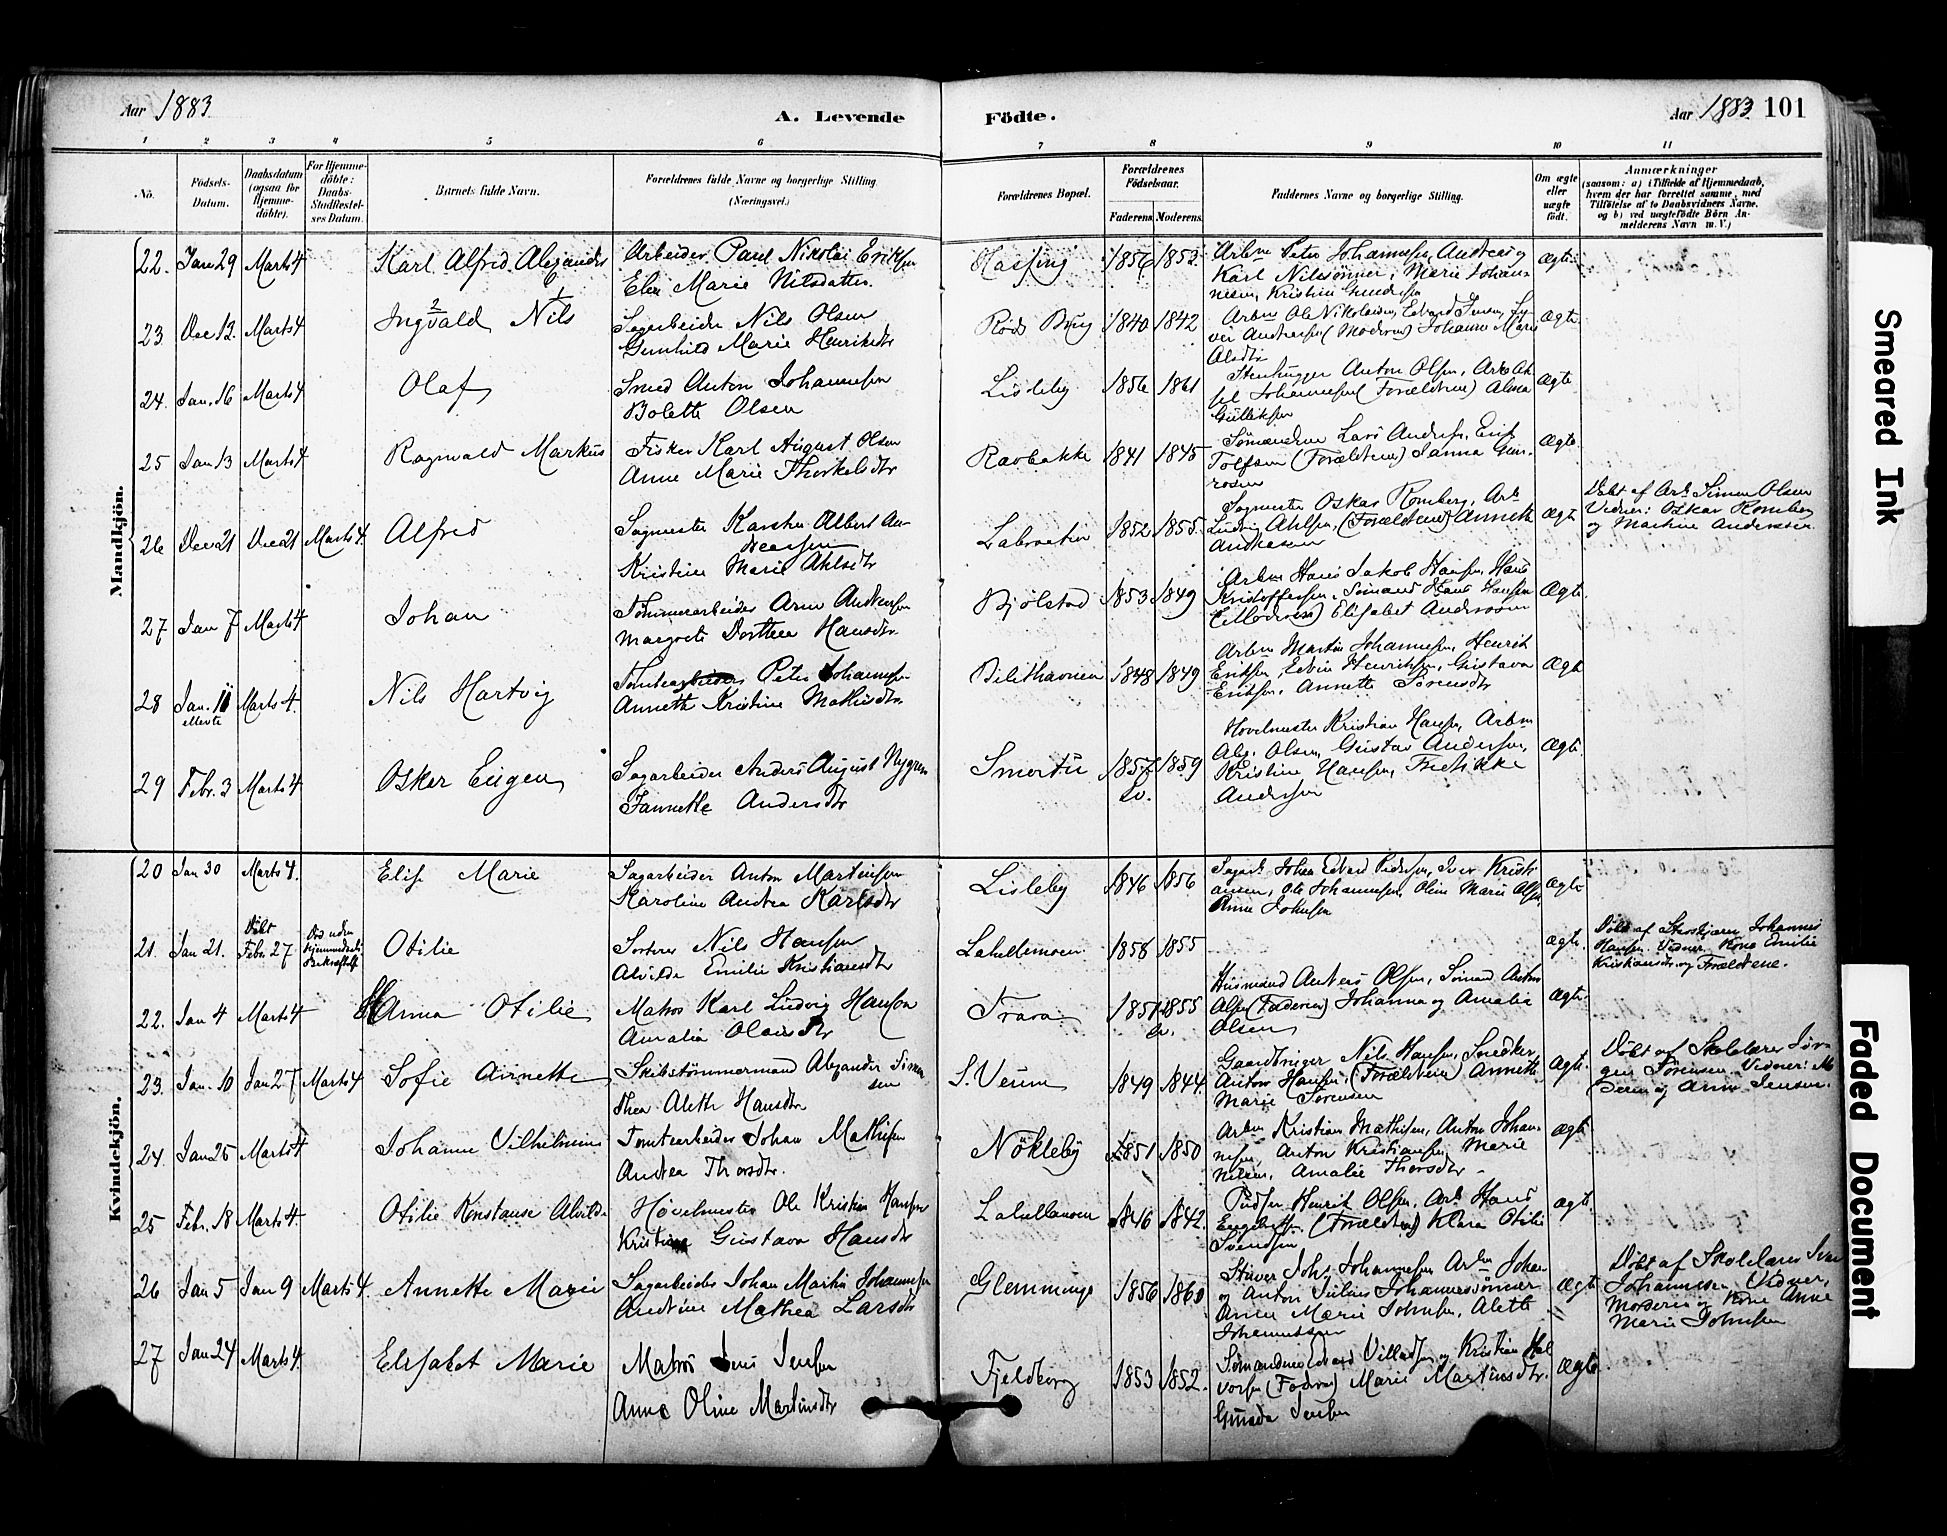 Aar 1883
A. Levende
Födte.
Aar 1883 101
1 2 3 4 5 6 7 8 9 10 11
No.
Födsels-Datum.
Daabsdatum (ogsaa for Hjemme-döbte).
For Hjemme-döbte: Daabs-Stadfæstel-ses Datum.
Barnets fulde Navn.
Forældrenes fulde Navne og borgerlige Stilling. (Næringsvei.)
Forældrenes Bopæl.
Forældrenes Födselsaar.
Faderens Moderens
Faddernes Navne og borgerlige Stilling.
Om ægte eller uægte födt.
Anmærkninger
(saasom: a) i Tilfælde af Hjemmedaab,
hvem der har forrettet samme, med
Tilföielse af to Daabsvidners Navne.
og b) ved uægtefödte Börn An-
melderens Navn m. V.)
Mandkjön.
22. Jan 29 Marts 4 Karl Alfred Alexander Arbeider Paul Nikolai Eriksen 1856 1853 Arbm Peter Johannesen, Andreas og Ægte
Elen Marie Nilsdatter. Karl Nilssönner, Marie Johan-
nesen, Kristine
23 Dec 12. Marts 4 Ingvald Nils Sagarbeider Nils Olsen Röds Brug 1840 1842 Arbm Ole Nikolaisen, Edvard Jensen, Ægte
Gunhild Marie Henriksdtr Andreasen (Moderen) Johanne Marie
Olsdtr
24. Jan. 16 Marts 4 Olaf Smed Anton Johannesen Lisleby 1856 1861 Stenhugger Anton Olsen, Arb Ægte
Bolette Olsen Johannesen (Forældrene) Alma
Gulliksen
25 Jan 13 Marts 4 Ragnvald Markus Fisker Karl August Olsen Ravbakke 1841 1845 Sömændene Lars Andersen, Erik Ægte
Anne Marie Thorkelsdtr Tolfsen (Forældrene) Janna Gun-
26 Dec 21 Dec 21 Marts 4. Alfred Sagmester Karsten Albert An- 1852 1855. Sagmester Oskar Romberg, Arb Ægte Döbt af Arb. Simen Olsen
dreasen Ludvig Ahlsen, (Forældrene) Annette Vidner: Oskar Romberg
Kristine Marie Ahlsdtr Andreasen og Martine Andersen.
27 Jan 7 Marts 4 Johan Tömmerarbeider Arne Andersen Bjölstad 1853 1849 Arbm Hans Jakob Hansen, Hans Ægte.
Margrete Dorthea Hansdtr. Kristoffersen, Sömand Hans Hansen
(Moderen) Elisabet Andersen
28 Jan. 11 Marts 4. Nils Hartvig Tomtearbeider Peter Johannesen 1848 1849 Arbm Martin Johannesen, Henrik Ægte
Annette Kristine Mathisdtr. Eriksen, Edvin Henriksen, Gustava
Eriksen, Annette Sörensdtr
29 Febr. 3 Marts 4 Osker Eugen Sagarbeider Anders August Nygren Smertu 1857 1859 Hövelmester Kristian Hansen, Arbm Ægte
Jannette Andersdtr Sv. Alex. Olsen, Gustav Andersen,
Kristine Hansen, Fredrikke
Andersen
Kvindekjön.
20 Jan 30 Marts 4. Elise Marie Sagarbeider Anton Martinsen Lisleby 1846 1856 Sagarb. Johan Edvard Pedersen, Iver Kristi- Ægte
Karoline Andrea Karlsdtr ansen, Ole Johannesen, Oline Marie Olsen,
Anne Johnsen
21. Jan 21. Döbt Febr. 27 Död uden Hjemmedaabs Bekræftelse Otilie Sorterer Nils Hansen Lahellemoen 1858 1855 Ægte. Döbt af Johannes
Alvilde Emilie Kristiansdtr Hansen. Vidner: Kone Emilie
Kristiansdtr og Forældrene.
22. Jan 4 Marts 4 Anna Otilie Matros Karl Ludvig Hansen Trara 1851 1855 Husmand Anders Olsen, Sömand Anton Ægte.
Amalia Olausdtr Sv. Olsen (Faderen) Johanna og Amalie
Olsen
23. Jan. 10 Jan 27 Marts 4 Sofie Annette Skibstömmermand Alexander Simon- S. Veum 1849 1844. Gaardbruger Nils Hansen, Snedker Ægte. Döbt af Skolelærer Jör-
sen Anton Hansen, (Forældrene) Annette gen Sörensen. Vidner: Mo-
Thea Alette Hansdtr Marie Sörensen deren og Anne Jensen.
24. Jan 25 Marts 4 Johanne Vilhelmine Tomtearbeider Johan Mathisen Nökleby 1851 1850 Arbm Kristian Mathisen, Anton Johan- Ægte
Andrea Thorsdtr. nesen, Anton Kristiansen, Marie
Nilsen, Amalie Thorsdtr
25 Febr. 18 Marts 4. Otilie Konstanse Alvilde Hövelmester Ole Kristian Hansen Lahellemoen 1846 1842. Henrik Olsen, Arb Hans Ægte
Kristine Gustava Hansdtr Engebretsen, (Forældrene) Klara Otilie
Svendsen
26 Jan 5 Jan 9 Marts 4. Annette Marie Sagarbeider Johan Martin Johannesen Glemminge 1856 1860 Stuver Johs Johannesen Arbm Johan Ægte Döbt af Skolelærer
Andrine Mathea Larsdtr og Anton Julius Johannessönner Johannesen. Vidner,
Anne Marie Johnsen, Alette Moderen og Kone Anne
Johannessen Marie Johnsen
27 Jan 24 Marts 4. Elisabet Marie Matros Jens Jensen Fjeldberg 1853 1852. Sömændene Edvard Villadsen og Kristian Hal- Ægte
Anne Oline Martinsdtr vorsen (Faderen) Marie Martinsdtr.
Gunda Jensen
Smeared Ink
Faded Document